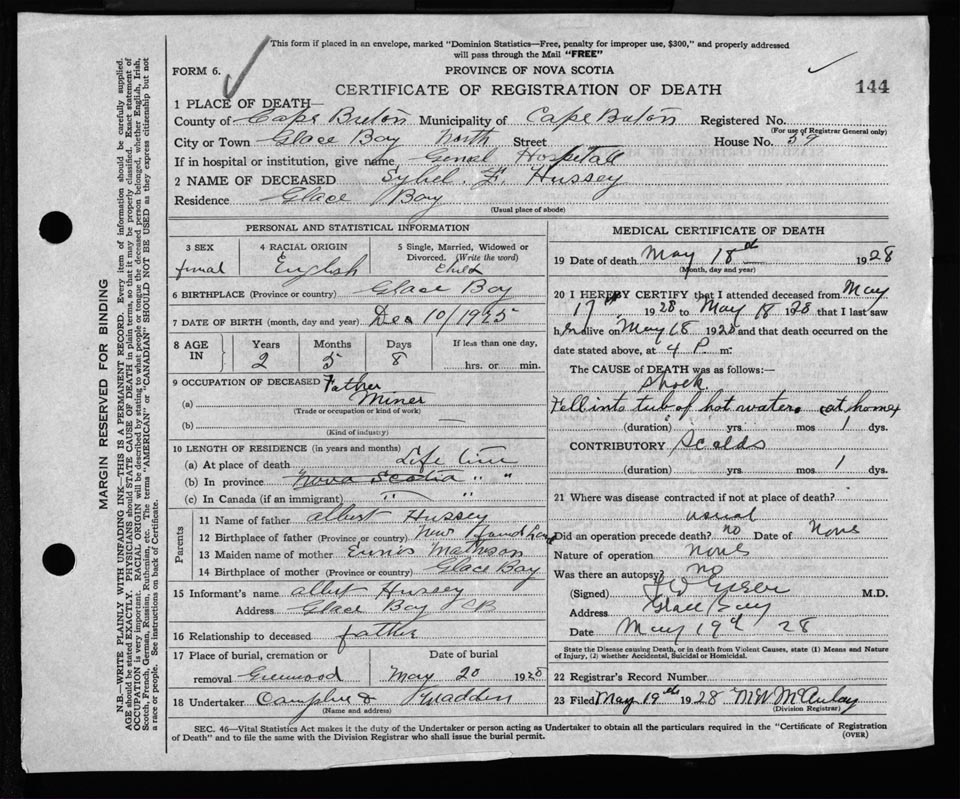 This form if placed in an envelope, marked "Dominion Statistics—Free, penalty for improper use, $300," and properly addressed
will pass through the Mail "FREE"
FORM 6.
PROVINCE OF NOVA SCOTIA
CERTIFICATE OF REGISTRATION OF DEATH
144
1 PLACE OF DEATH—
County of Cape Breton Municipality of Cape Breton Registered No.
(For use of Registrar General only)
City or Town Glace Bay North Street House No. 59
If in hospital or institution, give name, General Hospital
2 NAME OF DECEASED Sybel. F. Hussey
Residence Glace Bay
(Usual place of abode)
PERSONAL AND STATISTICAL INFORMATION
3 SEX
femal
4 RACIAL ORIGIN
English
5 Single, Married, Widowed or
Divorced. (Write the word)
Child
6 BIRTHPLACE (Province or country) Glace Bay
7 DATE OF BIRTH (month, day and year) Dec 10/1925
8 AGE IN
Years Months Days If less than one day,
2 5 8 hrs. or min.
9 OCCUPATION OF DECEASED Father
(a) Miner
(Trade or occupation or kind of work)
(b)
(Kind of industry)
10 LENGTH OF RESIDENCE (in years and months)
(a) At place of death Life time
(b) In province Nova Scotia " "
(c) In Canada (if an immigrant) " "
Parents
11 Name of father Albert Hussey
12 Birthplace of father (Province or country) New Foundland
13 Maiden name of mother Matheson
14 Birthplace of mother (Province or country) Glace Bay
15 Informant's name Albert Hussey
Address Glace Bay CB
16 Relationship to deceased father
17 Place of burial, cremation or Date of burial
removal Greenwood May 20 1928
18 Undertaker
(Name and address)
MEDICAL CERTIFICATE OF DEATH
19 Date of death May 18th 1928
(Month, day and year)
20 I HEREBY CERTIFY that I attended deceased from May
17th, 1928 to May 18 1928 that I last saw
her alive on May 18 1928 and that death occurred on the
date stated above, at 4 P. m.
The CAUSE of DEATH was as follows:—
Shock
Fell into tub of hot water, at home
(duration) yrs. mos 1 dys.
CONTRIBUTORY Scalds
(duration) yrs. mos 1 dys.
21 Where was disease contracted if not at place of death?
usual
Did an operation precede death? no Date of None
Nature of operation None
Was there an autopsy? no
(Signed) M.D.
Address Glace Bay
Date May 19th 28
State the Disease causing Death, or in death from Violent Causes, state (1) Means and Nature
of Injury, (2) whether Accidental, Suicidal or Homicidal.
22 Registrar's Record Number
23 Filed May 19th 1928 M W McAulay
(Division Registrar)
SEC. 46—Vital Statistics Act makes it the duty of the Undertaker or person acting as Undertaker to obtain all the particulars required in the "Certificate of Registration
of Death" and to file the same with the Division Registrar who shall issue the burial permit.
(OVER)
MARGIN RESERVED FOR BINDING
N.B.—WRITE PLAINLY WITH UNFADING INK—THIS IS A PERMANENT RECORD. Every item of information should be carefully supplied.
AGE should be stated EXACTLY. PHYSICIANS should STATE CAUSE OF DEATH in plain terms, so that it may be properly classified. Exact statement of
OCCUPATION is very important. RACIAL ORIGIN will be described by stating to what people or tongue the deceased person belonged, whether English, Irish,
Scotch, French, German, Russian, Ruthenian, etc. The terms "AMERICAN" or "CANADIAN" SHOULD NOT BE USED as they express citizenship but not
a race or people. See instructions on back of Certificate.